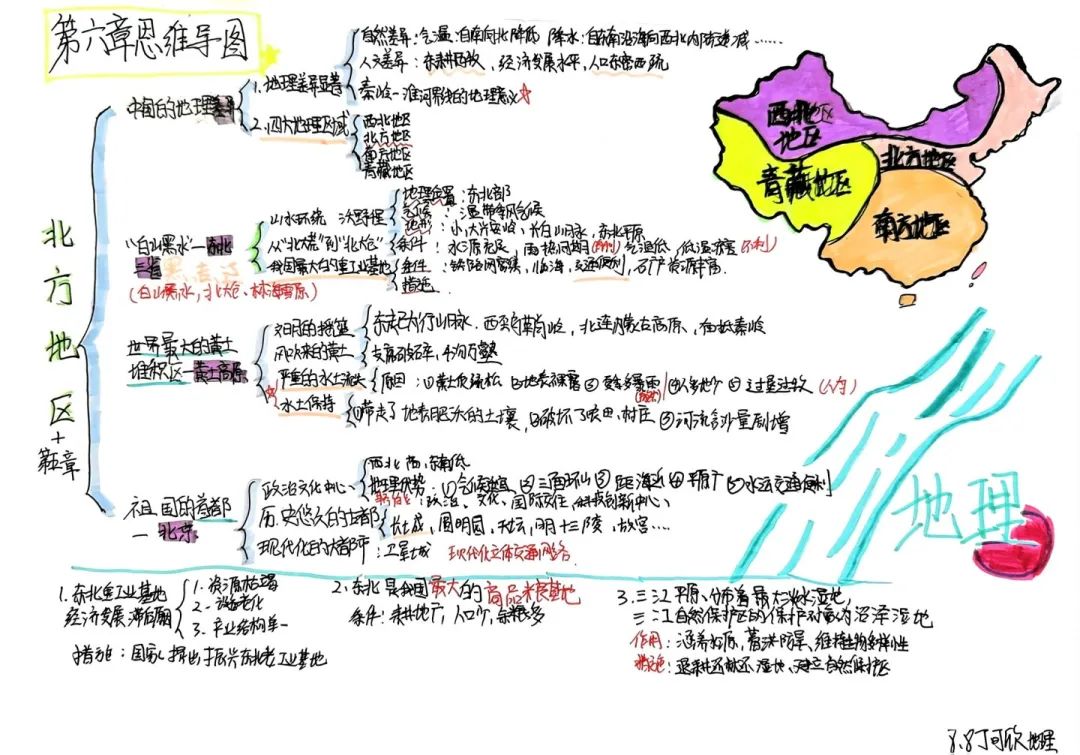 第六章思维导图
北方地区+第六章
中国的地理差异
1.地理差异显著
自然差异:气温:自南向北降低 降水:自东南沿海向西北内陆递减……
人文差异:东耕西牧,经济发展水平,人口东密西疏
秦岭—淮河界线的地理意义☆
2.四大地理区域
西北地区
北方地区
南方地区
青藏地区
"白山黑水"—东北三省
(白山黑水,北大仓、林海雪原)
山水环绕 沃野千里
地理位置:东北部
气候:温带季风气候
地形:小、大兴安岭、长白山脉、东北平原
从"北大荒"到"北大仓"
条件:水源充足,雨热同期 气温低、低温冻害(不利)
我国最大的重工业基地
条件:铁路网密集,临海,交通便利,石油资源丰富.
措施.
世界最大的黄土堆积区—黄土高原
文明的摇篮
东起太行山脉,西到乌鞘岭,北连内蒙古高原,南抵秦岭
风吹来的黄土
支离破碎,千沟万壑
严重的水土流失
原因:①黄土质疏松 ②地表裸露 ③夏季多暴雨 ①人多地少 ②过度放牧(人为)
☆水土保持
①带走了地表肥沃的土壤,②破坏了农田、村庄 ③河流含沙量剧增
祖国的首都—北京
政治文化中心
西北高,东南低
地理优势:①气候适宜 ②三面环山 ③距海近 ④平原广 ⑤水运交通便利
政治、文化、国际交往、科技创新中心
历史悠久的古都
长城,圆明园,天坛,明十三陵,故宫……
现代化的大都市:卫星城 现代化立体交通网络
1.东北重工业基地经济发展滞后原因
1.资源枯竭
2.设备老化
3.产业结构单一
措施:国家提出振兴东北老工业基地
2.东北是我国最大的商品粮基地
条件:耕地广,人口少,余粮多
3.三江平原、分布着最大淡水湿地,
三江自然保护区的保护对象为沼泽湿地
作用:涵养水源,蓄洪防旱、维持生物多样性
措施:退耕还林还湿地、建立自然保护区
西北地区
青藏地区
北方地区
南方地区
地理
8.8丁可欣地理